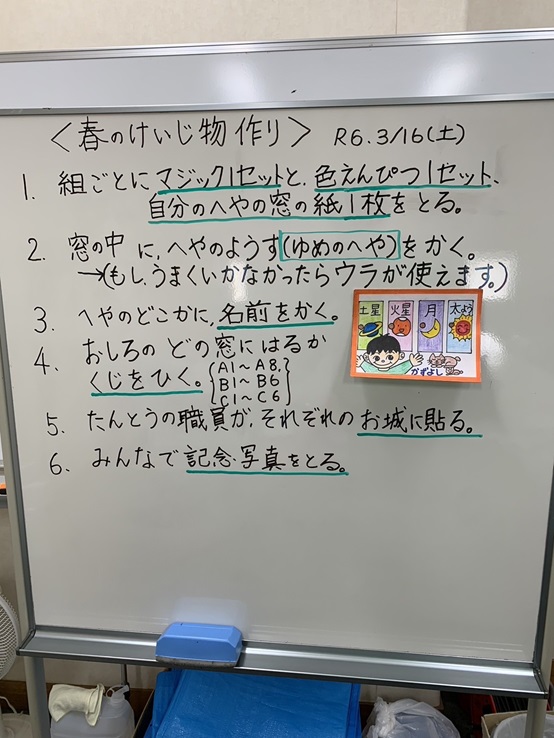 〈春のけいじ物作り〉 R6.3/16(土)
1. 組ごとにマジック1セットと、色えんぴつ1セット、
自分のへやの窓の紙1枚をとる。
2. 窓の中に、へやのようす(ゆめのへや)をかく。
→(もし、うまくいかなかったらウラが使えます。)
3. へやのどこかに、名前をかく。
土星 火星 月 太よう
かずよし
4. おしろのどの窓にはるか
くじをひく。
A1〜A8,
B1〜B6
C1〜C6
5. たんとうの職員が、それぞれのお城に貼る。
6. みんなで記念・写真をとる。